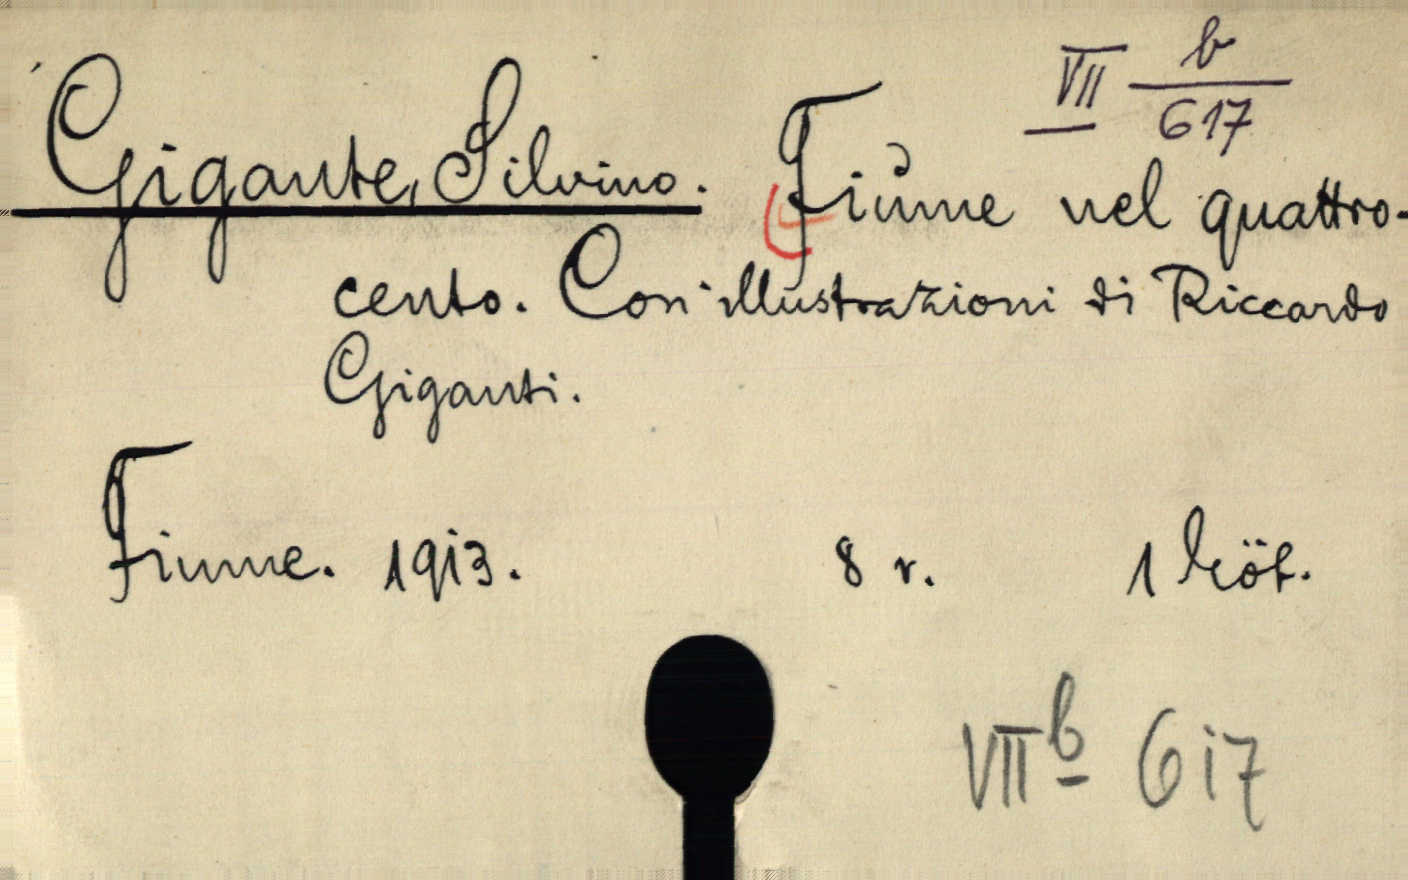 VII b/617
Gigante, Silvino. Fiume nel quattro-
cento. Con illustrazioni di Riccardo
Giganti.
Fiume. 1913. 8 r. 1 köt.
VII b 617